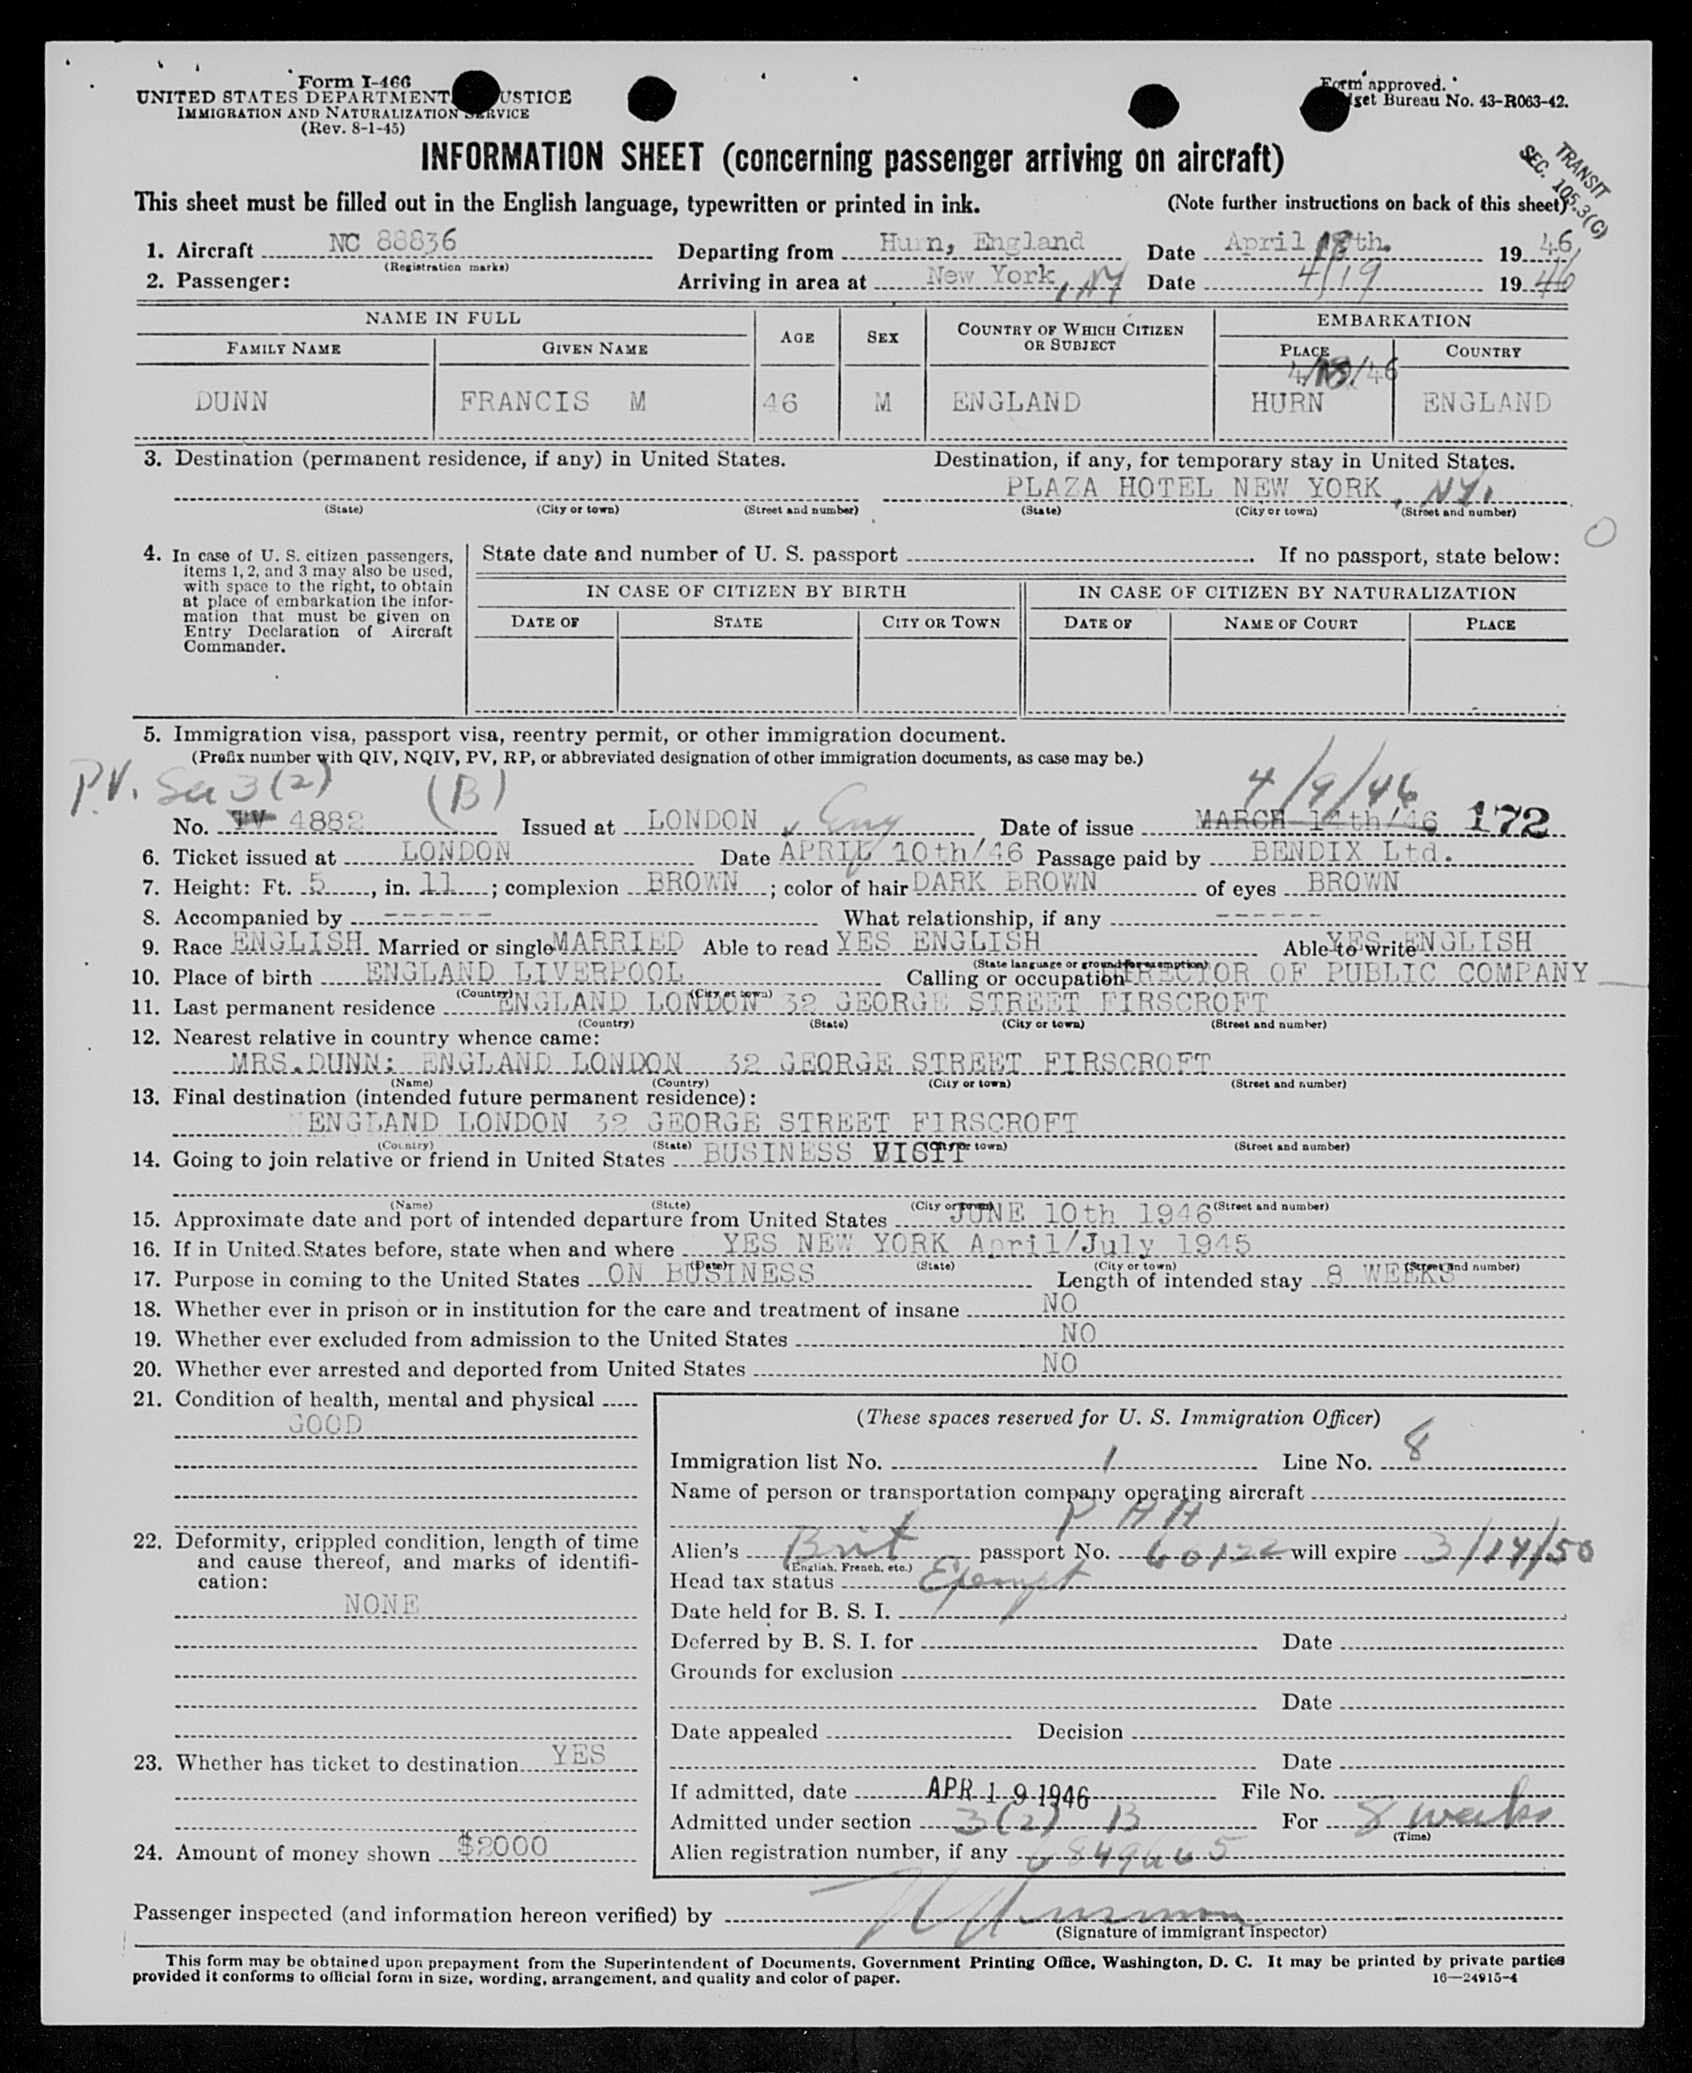 Form I-466
UNITED STATES DEPARTMENT JUSTICE
IMMIGRATION AND NATURALIZATION SERVICE
(Rev. 8-1-45)
Form approved.
Budget Bureau No. 43-R063-42.
INFORMATION SHEET (concerning passenger arriving on aircraft)
TRANSIT
SEC. 105.3(C)
This sheet must be filled out in the English language, typewritten or printed in ink. (Note further instructions on back of this sheet)
1. Aircraft NC 88836 Departing from Hurn, England Date April 18th. 1946
(Registration marks)
2. Passenger: Arriving in area at New York, NY Date 4/19 1946
NAME IN FULL AGE SEX COUNTRY OF WHICH CITIZEN OR SUBJECT EMBARKATION
FAMILY NAME GIVEN NAME PLACE COUNTRY
4/18/46
DUNN FRANCIS M 46 M ENGLAND HURN ENGLAND
3. Destination (permanent residence, if any) in United States. Destination, if any, for temporary stay in United States.
PLAZA HOTEL NEW YORK, NY.
(State) (City or town) (Street and number) (State) (City or town) (Street and number)
4. In case of U. S. citizen passengers, items 1, 2, and 3 may also be used, with space to the right, to obtain at place of embarkation the information that must be given on Entry Declaration of Aircraft Commander.
State date and number of U. S. passport If no passport, state below:
IN CASE OF CITIZEN BY BIRTH IN CASE OF CITIZEN BY NATURALIZATION
DATE OF STATE CITY OR TOWN DATE OF NAME OF COURT PLACE
5. Immigration visa, passport visa, reentry permit, or other immigration document.
(Prefix number with QIV, NQIV, PV, RP, or abbreviated designation of other immigration documents, as case may be.)
P.V. Sec 3(2) (B) 4/9/46
No. TV 4882 Issued at LONDON, Eng Date of issue MARCH 14th/46 172
6. Ticket issued at LONDON Date APRIL 10th/46 Passage paid by BENDIX Ltd.
7. Height: Ft. 5, in. 11; complexion BROWN; color of hair DARK BROWN of eyes BROWN
8. Accompanied by ------ What relationship, if any ------
9. Race ENGLISH Married or single MARRIED Able to read YES ENGLISH Able to write YES ENGLISH
(State language or ground for exemption)
10. Place of birth ENGLAND LIVERPOOL Calling or occupation DIRECTOR OF PUBLIC COMPANY
(Country) (City or town)
11. Last permanent residence ENGLAND LONDON 32 GEORGE STREET FIRSCROFT
(Country) (State) (City or town) (Street and number)
12. Nearest relative in country whence came:
MRS.DUNN: ENGLAND LONDON 32 GEORGE STREET FIRSCROFT
(Name) (Country) (City or town) (Street and number)
13. Final destination (intended future permanent residence):
ENGLAND LONDON 32 GEORGE STREET FIRSCROFT
(Country) (State) (City or town) (Street and number)
14. Going to join relative or friend in United States BUSINESS VISIT
(Name) (State) (City or town) (Street and number)
15. Approximate date and port of intended departure from United States JUNE 10th 1946
16. If in United States before, state when and where YES NEW YORK April/July 1945
(Date) (State) (City or town) (Street and number)
17. Purpose in coming to the United States ON BUSINESS Length of intended stay 8 WEEKS
18. Whether ever in prison or in institution for the care and treatment of insane NO
19. Whether ever excluded from admission to the United States NO
20. Whether ever arrested and deported from United States NO
21. Condition of health, mental and physical
GOOD
22. Deformity, crippled condition, length of time and cause thereof, and marks of identification:
NONE
23. Whether has ticket to destination YES
24. Amount of money shown $2000
(These spaces reserved for U. S. Immigration Officer)
Immigration list No. 1 Line No. 8
Name of person or transportation company operating aircraft
P A A
Alien's Brit passport No. 60122 will expire 3/14/50
(English, French, etc.)
Head tax status Exempt
Date held for B. S. I.
Deferred by B. S. I. for Date
Grounds for exclusion
Date
Date appealed Decision
Date
If admitted, date APR 19 1946 File No.
Admitted under section 3(2) B For 8 weeks
(Time)
Alien registration number, if any 6849665
Passenger inspected (and information hereon verified) by
(Signature of immigrant inspector)
This form may be obtained upon prepayment from the Superintendent of Documents, Government Printing Office, Washington, D. C. It may be printed by private parties
provided it conforms to official form in size, wording, arrangement, and quality and color of paper. 16—24915-4